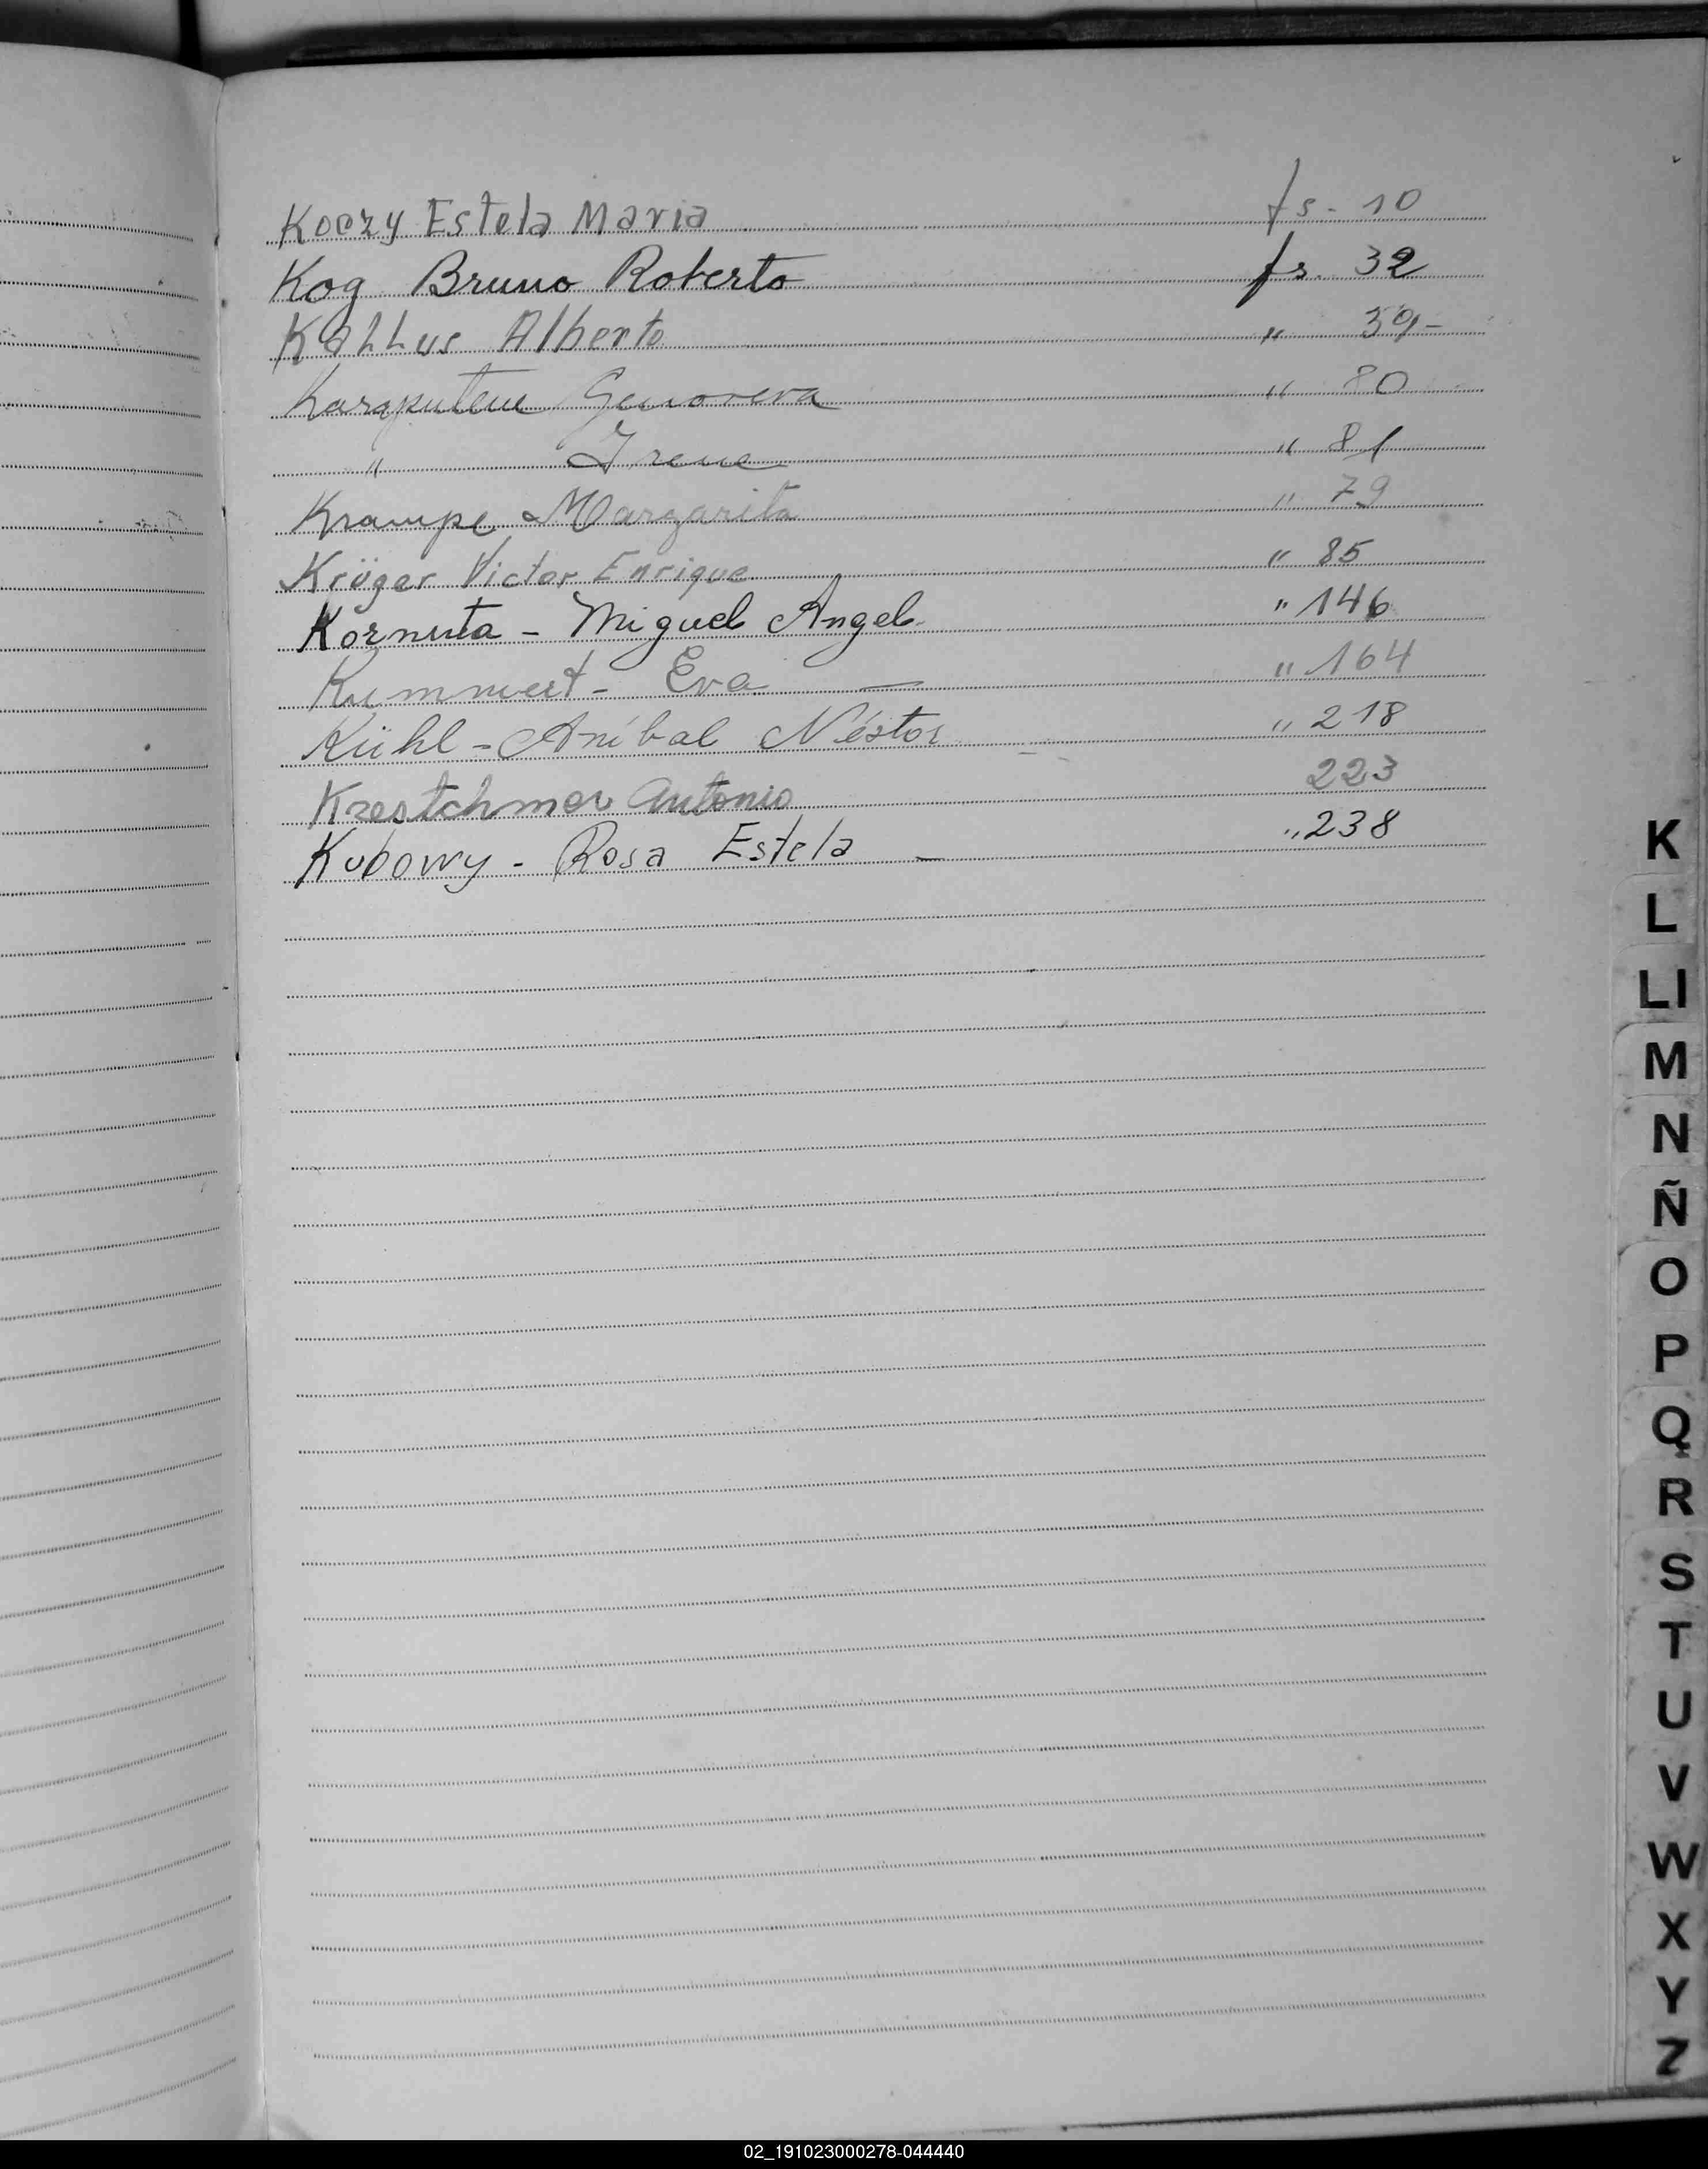 Koczy Estela Maria fs. 10
Kog Bruno Roberto fs. 32
Kallus Alberto " 39-
Karaputene Genoveva " 80
" Irene " 81
Krampe Margarita " 79
Krüger Victor Enrique " 85
Kornuta - Miguel Angel " 146
Eva — " 164
Kühl - Aníbal Néstor " 218
Krestchmer Antonio 223
Kubowy - Rosa Estela — " 238
K
L
Ll
M
N
Ñ
O
P
Q
R
S
T
U
V
W
X
Y
Z
02_191023000278-044440